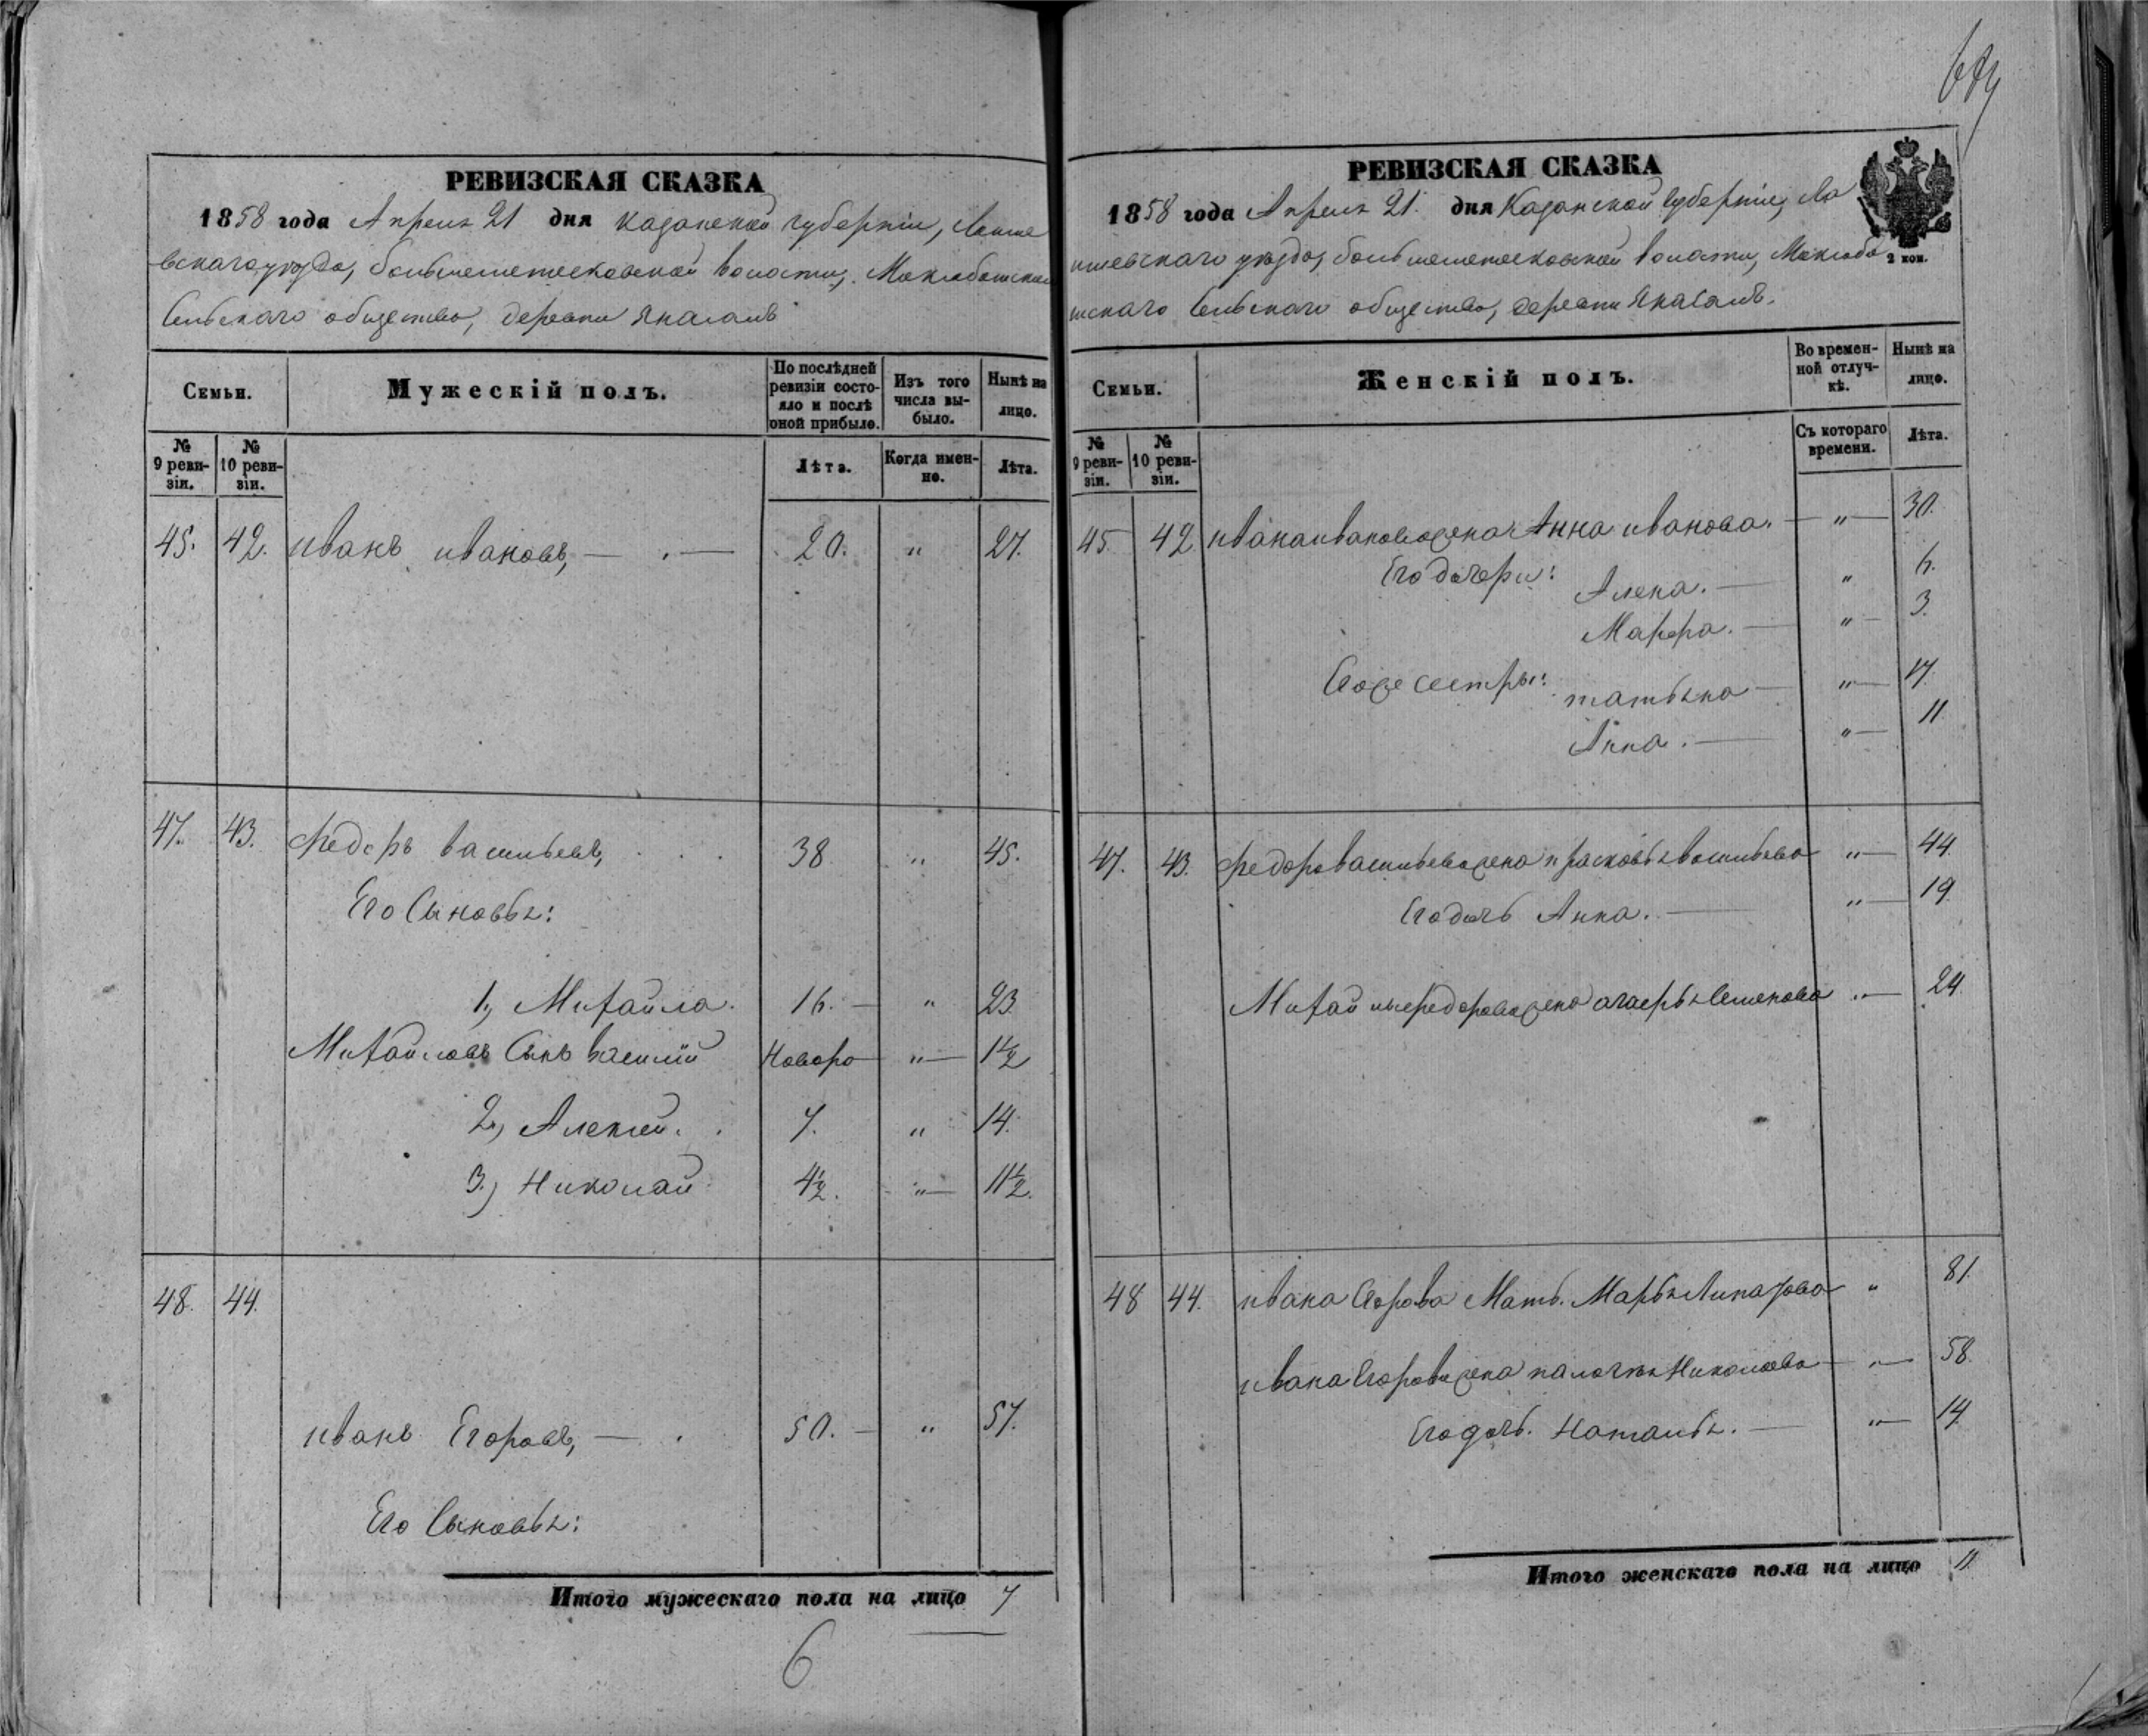 РЕВИЗСКАЯ СКАЗКА
1858 года Апреля 21 дня Казанской губерніи, Лаише
вскаго уѣзда, большеметесковской волости,
Сельскаго общества, деревни Янасалъ
Семьи.
Мужескій полъ.
По послѣдней ревизіи состояло и послѣ оной прибыло.
Изъ того числа выбыло.
Нынѣ на лицо.
№ 9 ревизіи.
№ 10 ревизіи.
Лѣта.
Когда именно.
Лѣта.
45. 42. Иванъ Ивановъ, — . — 20. " 27.
47. 43. Федоръ Васильевъ, . . . 38 " 45.
Его Сыновья:
1, Михайла. 16. — " 23.
Михайловъ Сынъ Василій Новоро — " — 1½
2, Алексей. . 7. " 14.
3, Николай 4½. " — 11½.
48. 44.
Иванъ Егоровъ, — . 50. — " 57.
Его Сыновья:
Итого мужескаго пола на лицо 7
6
РЕВИЗСКАЯ СКАЗКА
1858 года Апреля 21. дня Казанской губерніи, Ла
ишевскаго уѣзда, большеметесковской волости,
2 коп.
Сельскаго общества, деревни Янасалъ.
Семьи.
Женскій полъ.
Во временной отлучкѣ.
Нынѣ на лицо.
№ 9 ревизіи.
№ 10 ревизіи.
Съ котораго времени.
Лѣта.
45. 42 Ивана Иванова жена Анна Иванова. — " — 30.
Его дочери:
Алена. — " 6.
Марфа. — " — 3.
Его же сестры:
Татьяна — " — 17.
Анна. — " — 11
47. 43. Федора Васильева жена Прасковья Васильева " — 44.
Его дочь Анна. — " — 19.
Михайлы Федорова жена Семенова " — 24.
48 44. Ивана Егорова Мать. Марья " 81.
Ивана Егорова жена Николаева — " — 58.
Его дочь. Наталья. — " — 14.
Итого женскаго пола на лицо 11.